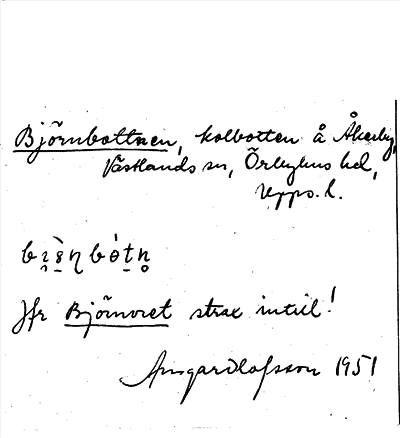 Björnbottnen, kolbotten å Åkerby,
Västlands sn, Örbyhus hd,
Upps. l.
Jfr Björnoret strax intill!
Ansgar Olofsson 1951